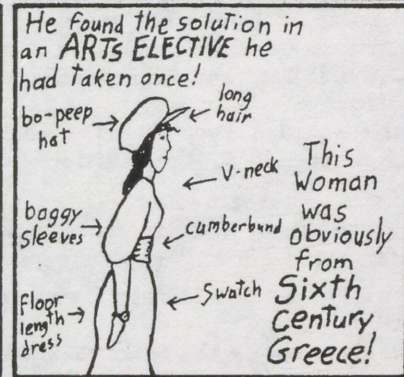 He found the solution in
an ARTS ELECTIVE he
had taken once!
bo-peep
hat
long
hair
V-neck
baggy
sleeves
cumberbund
floor
length
dress
Swatch
This
Woman
was
obviously
from
Sixth
century
Greece!